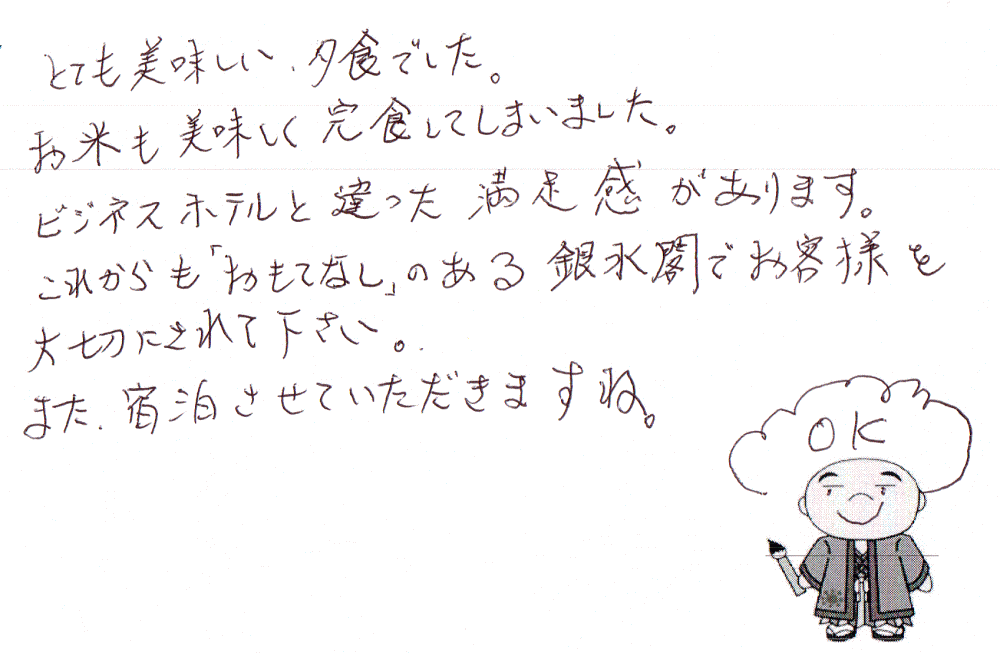 とても美味しい、夕食でした。
お米も美味しく完食してしまいました。
ビジネスホテルと違った満足感があります。
これからも「おもてなし」のある銀水閣でお客様を
大切にされて下さい。
また、宿泊させていただきますね。
OK